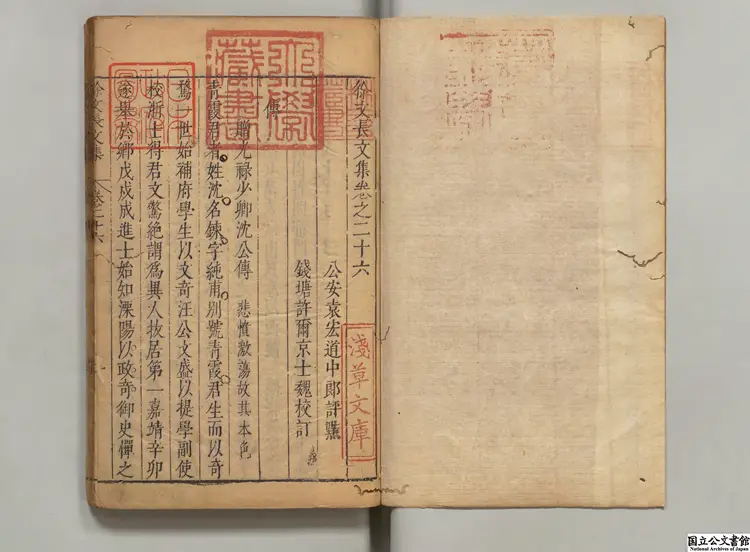 徐文長文集卷之二十六
公安袁宏道中郎評點
錢塘許爾京士魏校訂
淺草文庫
傳
贈光祿少卿沈公傳 悲憤激蕩故其本色
青霞君者姓沈名鍊字純甫別號青霞君生而以奇
驁一世始補府學生以文奇汪公文盛以提學副使
校浙士得君文驚絶謂爲異人拔居第一嘉靖辛卯
遂舉於鄉戊戌成進士始知溧陽以政奇御史憚之
徐文長文集 卷二十六
藏書
国立公文書館
National Archives of Japan